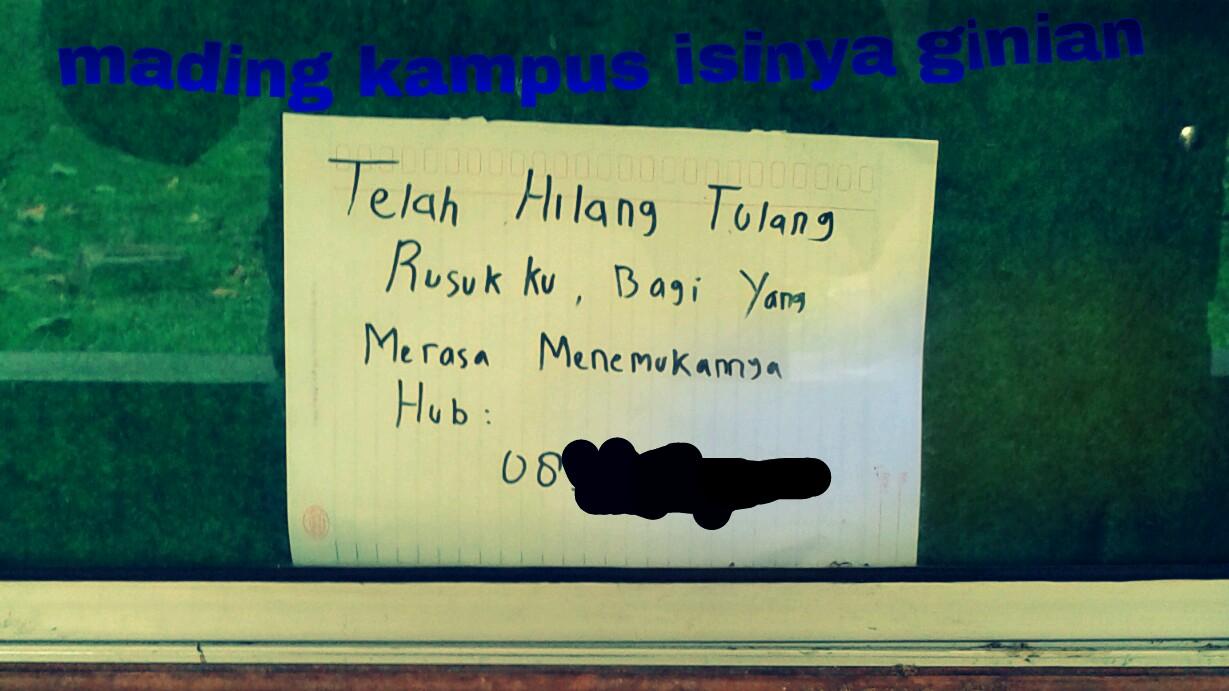 mading kampus isinya ginian
Telah Hilang Tulang
Rusuk ku, Bagi Yang
Merasa Menemukannya
Hub:
08